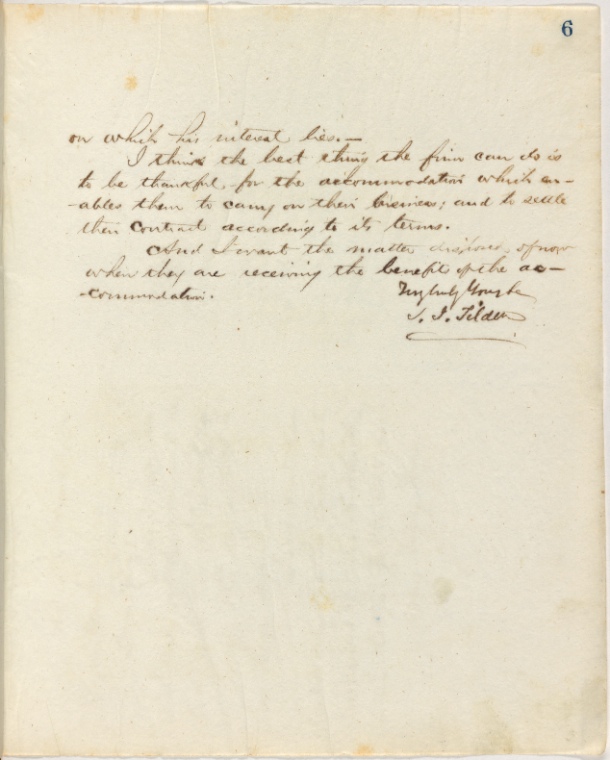 6
on which his interest lies.—
I think the best thing the firm can do is
to be thankful for the accommodation which en-
-ables them to carry on their business; and to settle
their contract according to its terms.
And I want the matter disposed of now
when they are receiving the benefit of the ac-
-commodation.
Very truly Yours
S. J. Tilden